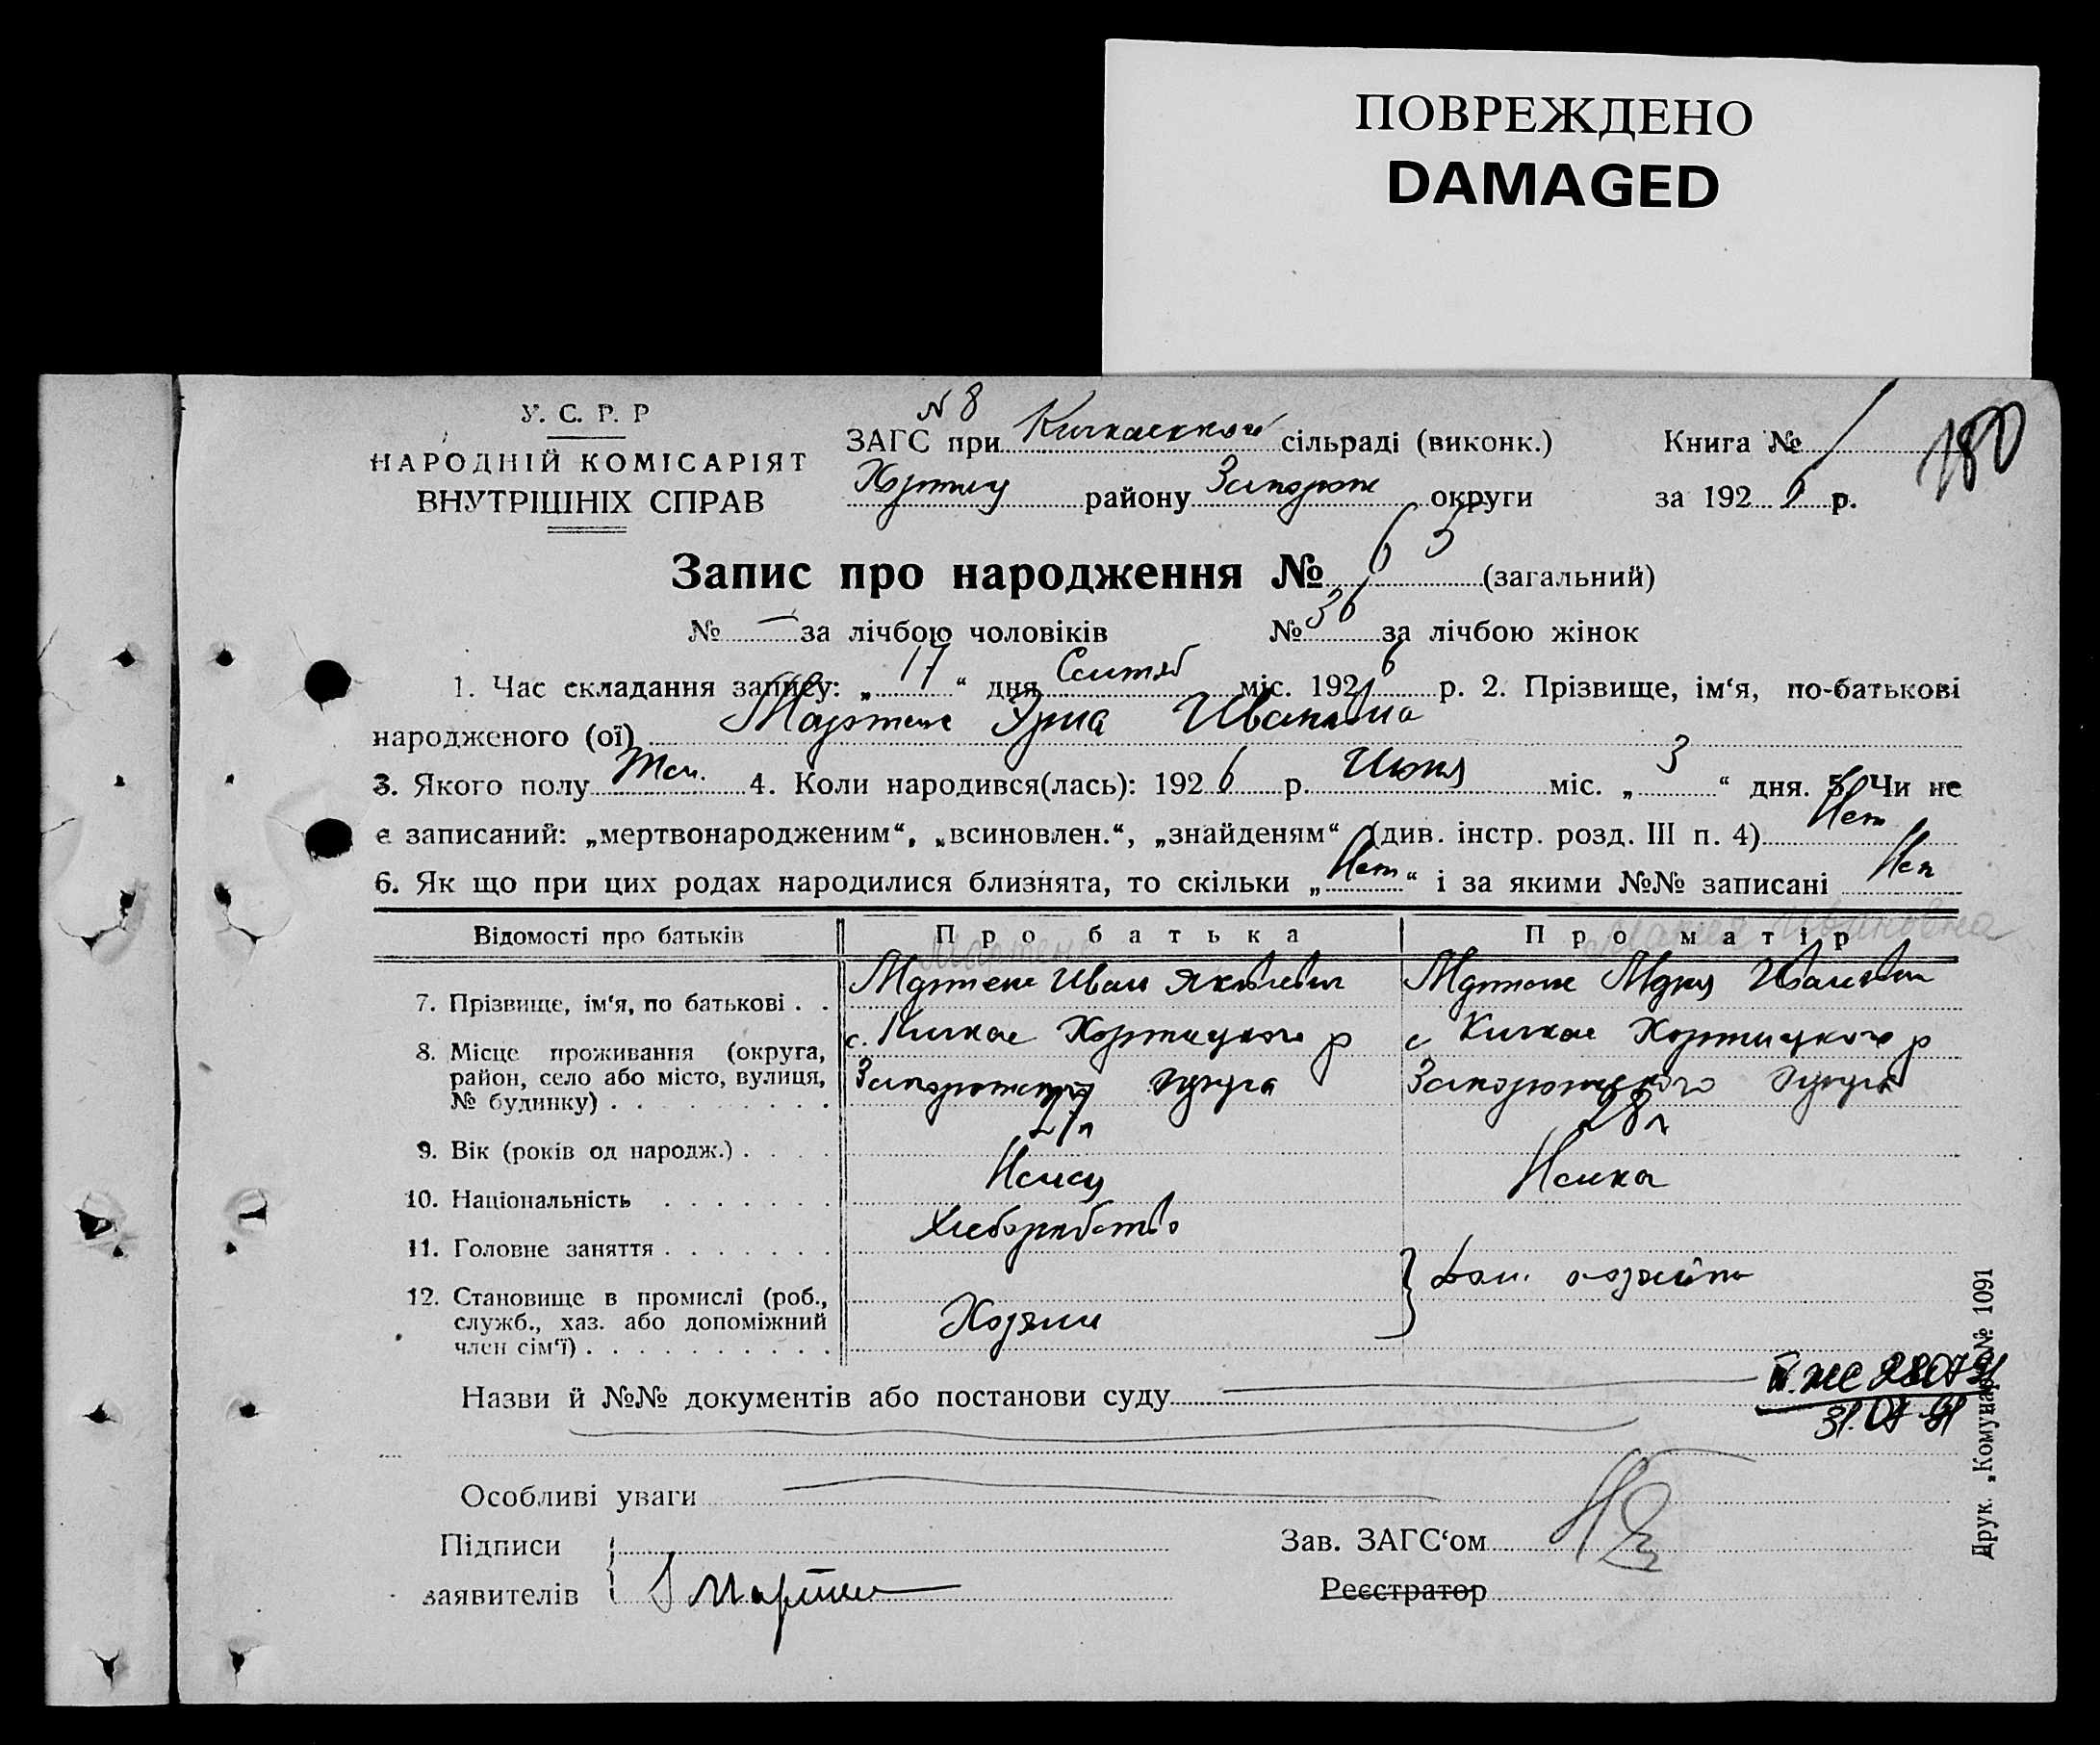 ПОВРЕЖДЕНО
DAMAGED
У. С. Р. Р
НАРОДНІЙ КОМІСАРІЯТ
ВНУТРІШНІХ СПРАВ
N 8
ЗАГС при Кичкасского сільраді (виконк.) Книга № 1
180
Хортиц району Запорож округи за 1926 р.
Запис про народження № 65 (загальний)
№ — за лічбою чоловіків № 36 за лічбою жінок
1. Час складання запису: „ 17 “ дня Сентяб міс. 1926 р. 2. Прізвище, ім‘я, по-батькові
народженого (ої) Мартенс Ирма Ивановна
3. Якого полу Жен. 4. Коли народився(лась): 1926 р. Июня міс. „ 3 “ дня. 5. Чи не
є записаний: „мертвонародженим“, „всиновлен.“, „знайденям“ (див. інстр. розд. III п. 4) Нет
6. Як що при цих родах народилися близнята, то скільки „ Нет “ і за якими №№ записані Нет
Відомості про батьків Про батька Про матір
Мартенс Мария Ивановна
7. Прізвище, ім‘я, по батькові . . Мартенс Иван Яковлевич Мартенс Мария Ивановна
8. Місце проживання (округа, район, село або місто, вулиця, № будинку) . с. Кичкас Хортицкого р Запорожского округа с Кичкас Хортицкого р Запорожского округа
9. Вік (років од народж.) . 27 л 28 л
10. Національність Немец Немка
11. Головне заняття Хлеборобство
12. Становище в промислі (роб., служб., хаз. або допоміжний член сім‘ї) . Хозяин } Дом. хозяйка
Назви й №№ документів або постанови суду
31.07.91
Особливі уваги
Підписи
заявителів Мартенс
Зав. ЗАГС‘ом
Реєстратор
Друк. „Комунар“ № 1091